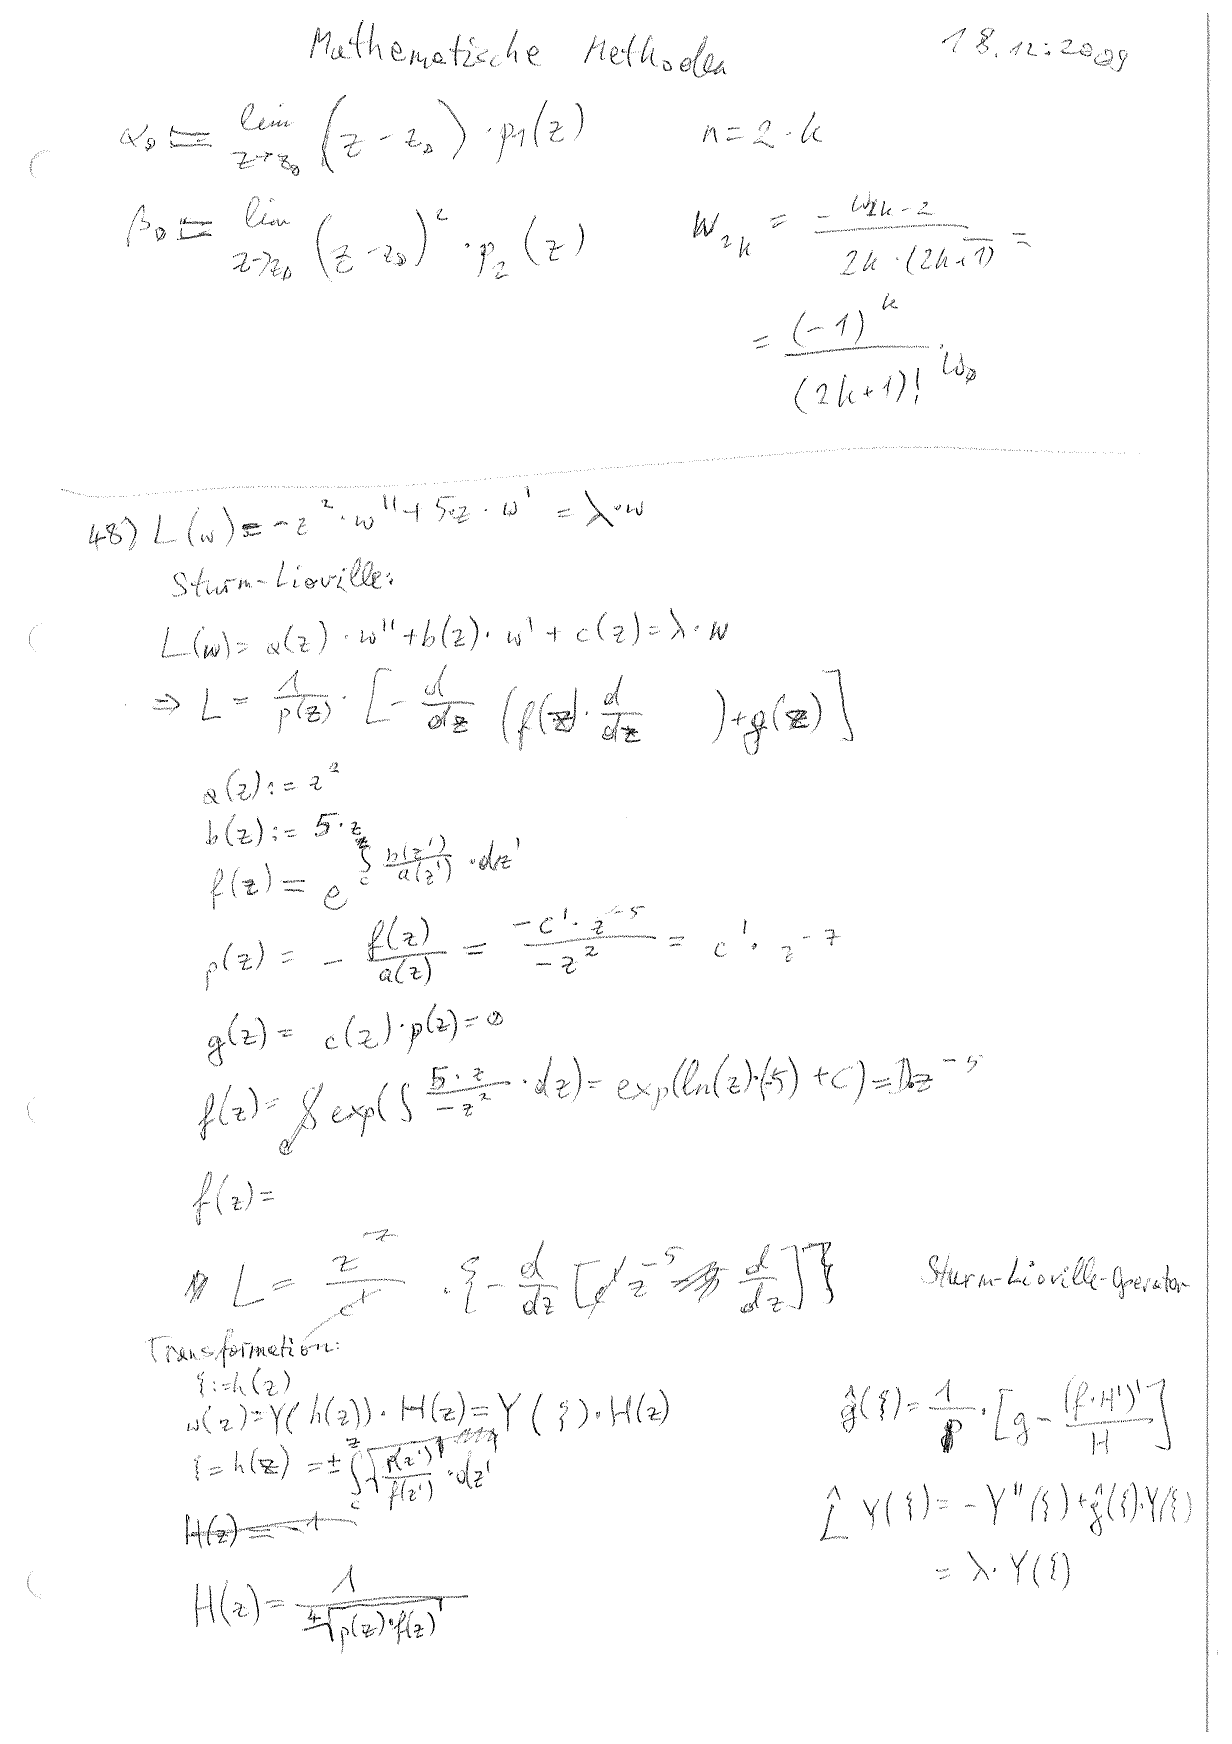 Mathematische Methoden 18.12.2009
α₀ = lim_{z→z₀} (z - z₀) · p₁(z) n = 2·k
β₀ = lim_{z→z₀} (z - z₀)² · p₂(z) w_{2k} = -w_{2k-2} / (2k·(2k+1)) =
= (-1)^k / (2k+1)! · w₀
48) L(w) = -z²·w'' + 5·z·w' = λ·w
Sturm-Lioville:
L(w) = a(z)·w'' + b(z)·w' + c(z) = λ·w
⇒ L = 1/p(z) · [-d/dz (f(z)·d/dz ) + g(z)]
a(z) := z²
b(z) := 5·z
f(z) = e^{∫_c^z b(z')/a(z') · dz'}
p(z) = - f(z)/a(z) = (-c'·z^{-5})/(-z²) = c'·z^{-7}
g(z) = c(z)·p(z) = 0
f(z) = exp(∫ (5·z)/(-z²) · dz) = exp(ln(z)·(-5) + C) = D·z^{-5}
f(z) =
L = z^7/c' · {-d/dz [c' z^{-5} d/dz]} Sturm-Lioville-Operator
Transformation:
ξ := h(z)
w(z) = Y(h(z))·H(z) = Y(ξ)·H(z) ĝ(ξ) = 1/p · [g - (f·H')'/H]
ξ = h(z) = ± ∫_c^z √(p(z')/f(z')) · dz'
H(z) = -1 L̂ Y(ξ) = -Y''(ξ) + ĝ(ξ)·Y(ξ)
= λ·Y(ξ)
H(z) = 1 / ⁴√(p(z)·f(z))